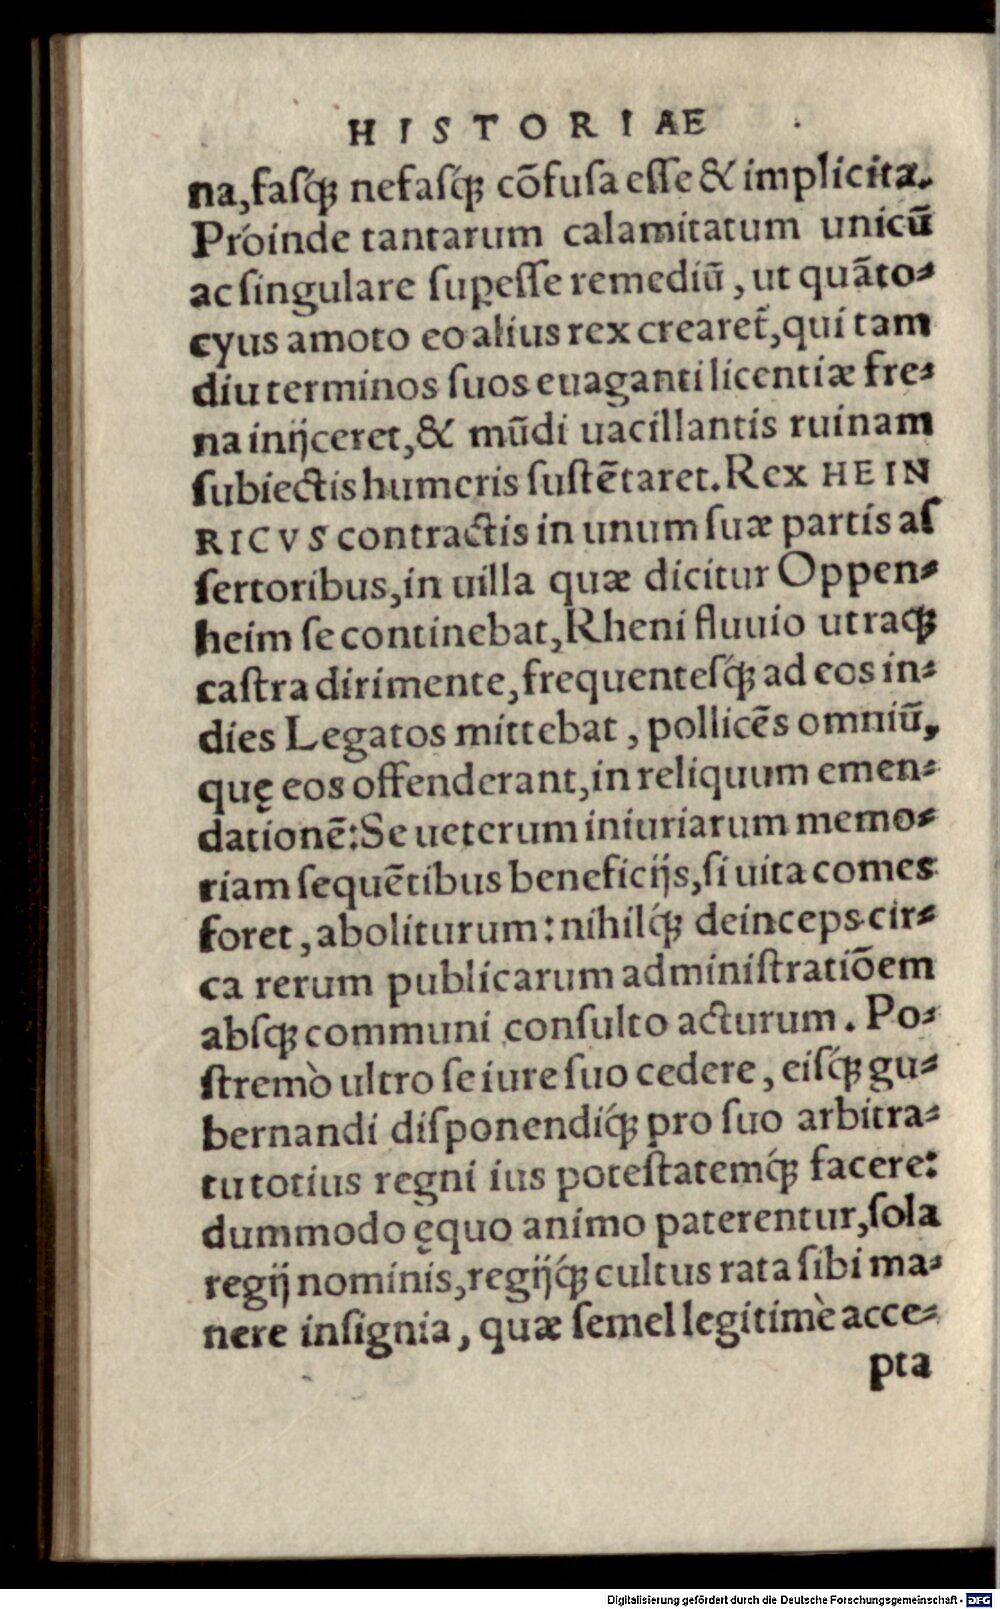 HISTORIAE
na, fasq́ꝫ nefasq́ꝫ cõfusa esse & implicita.
Proinde tantarum calamitatum unicũ
ac singulare suꝑesse remediũ, ut quãto-
cyus amoto eo alius rex crearet̃, qui tam
diu terminos suos euaganti licentiæ fre-
na inijceret, & mũdi uacillantis ruinam
subiectis humeris sustẽtaret. Rex HEIN
RICVS contractis in unum suæ partis as
sertoribus, in uilla quæ dicitur Oppen-
heim se continebat, Rheni fluuio utraqꝫ
castra dirimente, frequentesq́ꝫ ad eos in-
dies Legatos mittebat, pollicẽs omniũ,
quę eos offenderant, in reliquum emen-
dationẽ: Se ueterum iniuriarum memo-
riam sequẽtibus beneficijs, si uita comes
foret, aboliturum: nihilq́ꝫ deinceps cir-
ca rerum publicarum administratiõem
absqꝫ communi consulto acturum. Po-
stremò ultro se iure suo cedere, eisq́ꝫ gu-
bernandi disponendiq́ꝫ pro suo arbitra-
tu totius regni ius potestatemq́ꝫ facere:
dummodo ęquo animo paterentur, sola
regij nominis, regijq́ꝫ cultus rata sibi ma-
nere insignia, quæ semel legitimè acce-
pta
Digitalisierung gefördert durch die Deutsche Forschungsgemeinschaft - DFG